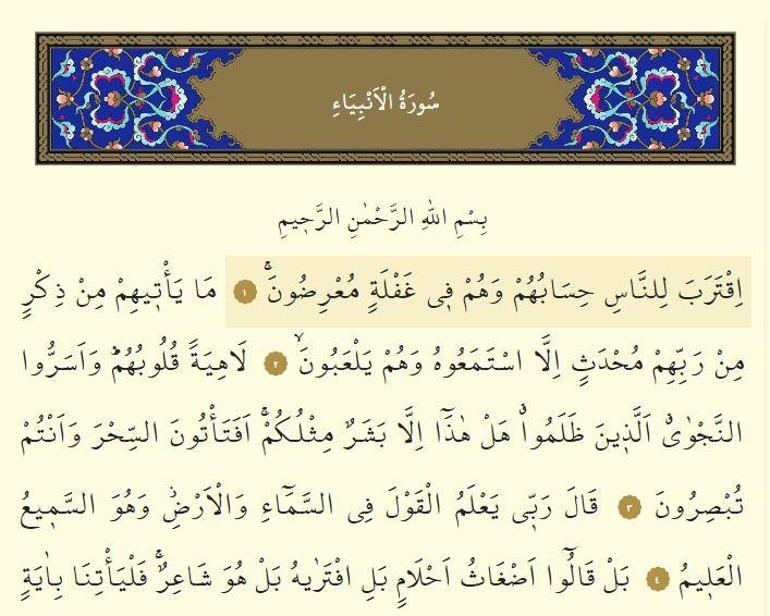 سُورَةُ الْاَنْبِيَاءِ
بِسْمِ اللّٰهِ الرَّحْمٰنِ الرَّحِيمِ
اِقْتَرَبَ لِلنَّاسِ حِسَابُهُمْ وَهُمْ فِى غَفْلَةٍ مُعْرِضُونَۚ ١ مَا يَأْتِيهِمْ مِنْ ذِكْرٍ
مِنْ رَبِّهِمْ مُحْدَثٍ اِلَّا اسْتَمَعُوهُ وَهُمْ يَلْعَبُونَۙ ٢ لَاهِيَةً قُلُوبُهُمْۜ وَاَسَرُّوا
النَّجْوٰىۗ اَلَّذِينَ ظَلَمُواۗ هَلْ هٰذَٓا اِلَّا بَشَرٌ مِثْلُكُمْۚ اَفَتَأْتُونَ السِّحْرَ وَاَنْتُمْ
تُبْصِرُونَ ٣ قَالَ رَبِّى يَعْلَمُ الْقَوْلَ فِى السَّمَٓاءِ وَالْاَرْضِۘ وَهُوَ السَّمِيعُ
الْعَلِيمُ ٤ بَلْ قَالُٓوا اَضْغَاثُ اَحْلَامٍ بَلِ افْتَرٰيهُ بَلْ هُوَ شَاعِرٌۚ فَلْيَأْتِنَا بِاٰيَةٍ